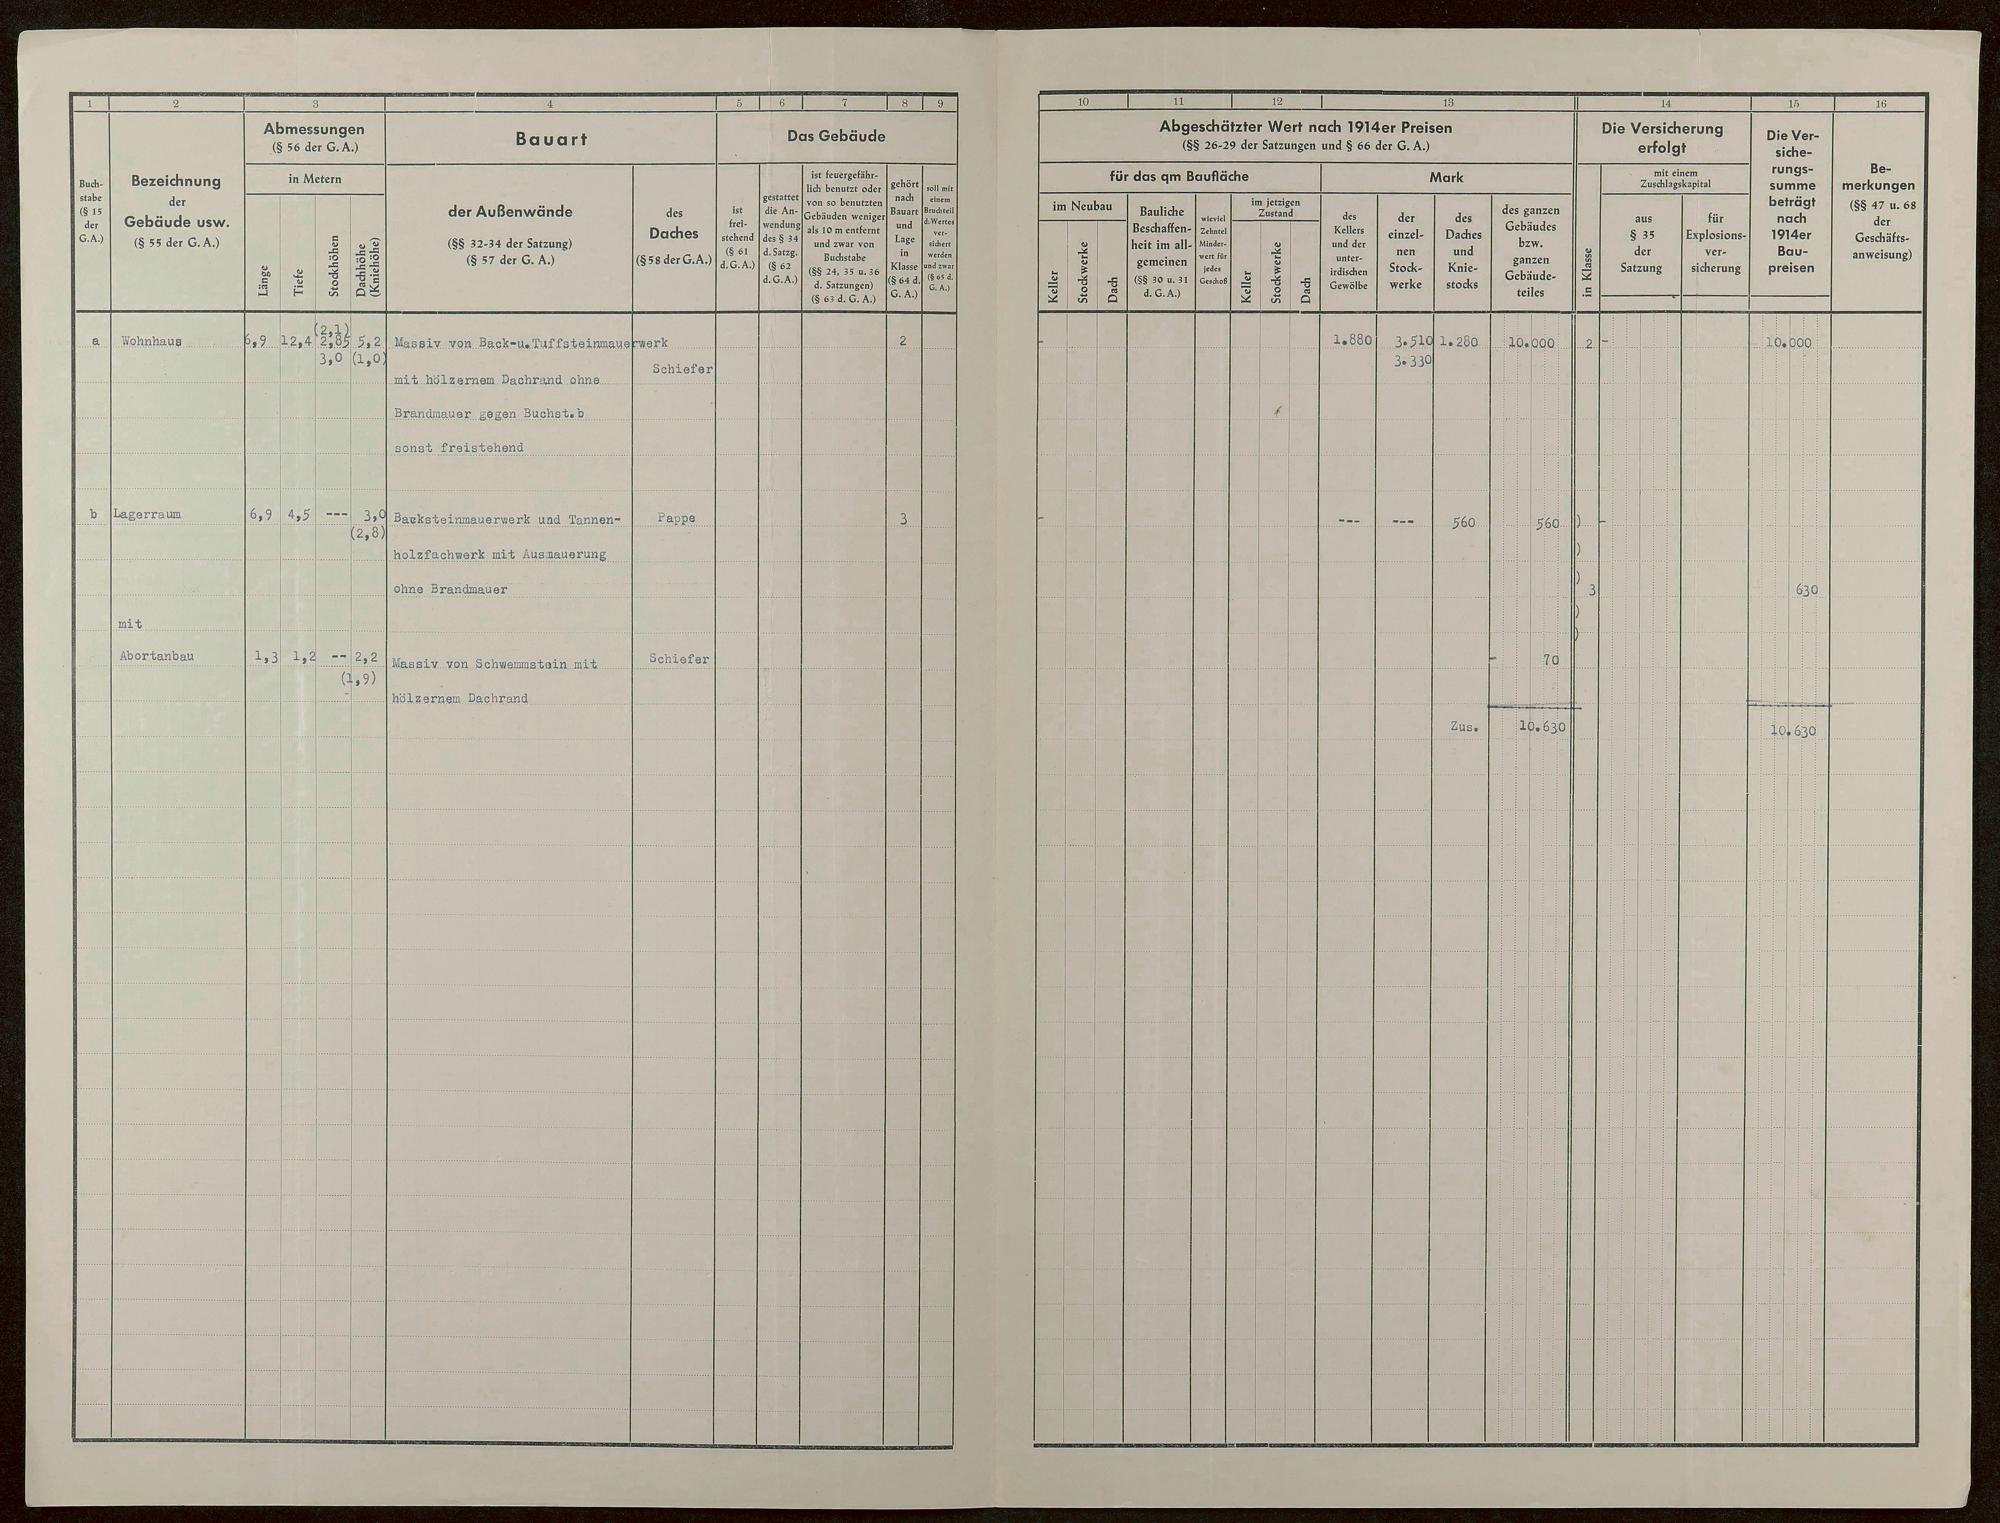 1 2 3 4 5 6 7 8 9
Buch-
stabe
(§ 15
der
G.A.)
Bezeichnung
der
Gebäude usw.
(§ 55 der G. A.)
Abmessungen
(§ 56 der G. A.)
in Metern
Länge
Tiefe
Stockhöhen
Dachhöhe
(Kniehöhe)
Bauart
der Außenwände
(§§ 32-34 der Satzung)
(§ 57 der G. A.)
des
Daches
(§ 58 der G.A.)
Das Gebäude
ist
frei-
stehend
(§ 61
d. G. A.)
gestattet
die An-
wendung
des § 34
d. Satzg.
(§ 62
d. G. A.)
ist feuergefähr-
lich benutzt oder
von so benutzten
Gebäuden weniger
als 10 m entfernt
und zwar von
Buchstabe
(§§ 24, 35 u. 36
d. Satzungen)
(§ 63 d. G. A.)
gehört
nach
Bauart
und
Lage
in
Klasse
(§ 64 d.
G. A.)
soll mit
einem
Bruchteil
d. Wertes
ver-
sichert
werden
und zwar
(§ 65 d.
G. A.)
a Wohnhaus 6,9 12,4 (2,1) 2,85 5,2 Massiv von Back-u.Tuffsteinmauerwerk 2
3,0 (1,0)
Schiefer
mit hölzernem Dachrand ohne
Brandmauer gegen Buchst.b
sonst freistehend
b Lagerraum 6,9 4,5 --- 3,0 Backsteinmauerwerk und Tannen- Pappe 3
(2,8)
holzfachwerk mit Ausmauerung
ohne Brandmauer
mit
Abortanbau 1,3 1,2 -- 2,2 Massiv von Schwemmstein mit Schiefer
(1,9)
hölzernem Dachrand
10 11 12 13 14 15 16
Abgeschätzter Wert nach 1914er Preisen
(§§ 26-29 der Satzungen und § 66 der G. A.)
für das qm Baufläche
im Neubau
Keller
Stockwerke
Dach
Bauliche
Beschaffen-
heit im all-
gemeinen
(§§ 30 u. 31
d. G. A.)
wieviel
Zehntel
Minder-
wert für
jedes
Geschoß
im jetzigen
Zustand
Keller
Stockwerke
Dach
Mark
des
Kellers
und der
unter-
irdischen
Gewölbe
der
einzel-
nen
Stock-
werke
des
Daches
und
Knie-
stocks
des ganzen
Gebäudes
bzw.
ganzen
Gebäude-
teiles
Die Versicherung
erfolgt
in Klasse
mit einem
Zuschlagskapital
aus
§ 35
der
Satzung
für
Explosions-
ver-
sicherung
Die Ver-
siche-
rungs-
summe
beträgt
nach
1914er
Bau-
preisen
Be-
merkungen
(§§ 47 u. 68
der
Geschäfts-
anweisung)
- 1.880 3.510 1.280 10.000 2 - 10.000
3.330
- --- --- 560 560 ) -
)
)
3 630
)
)
- 70
Zus. 10.630 10.630